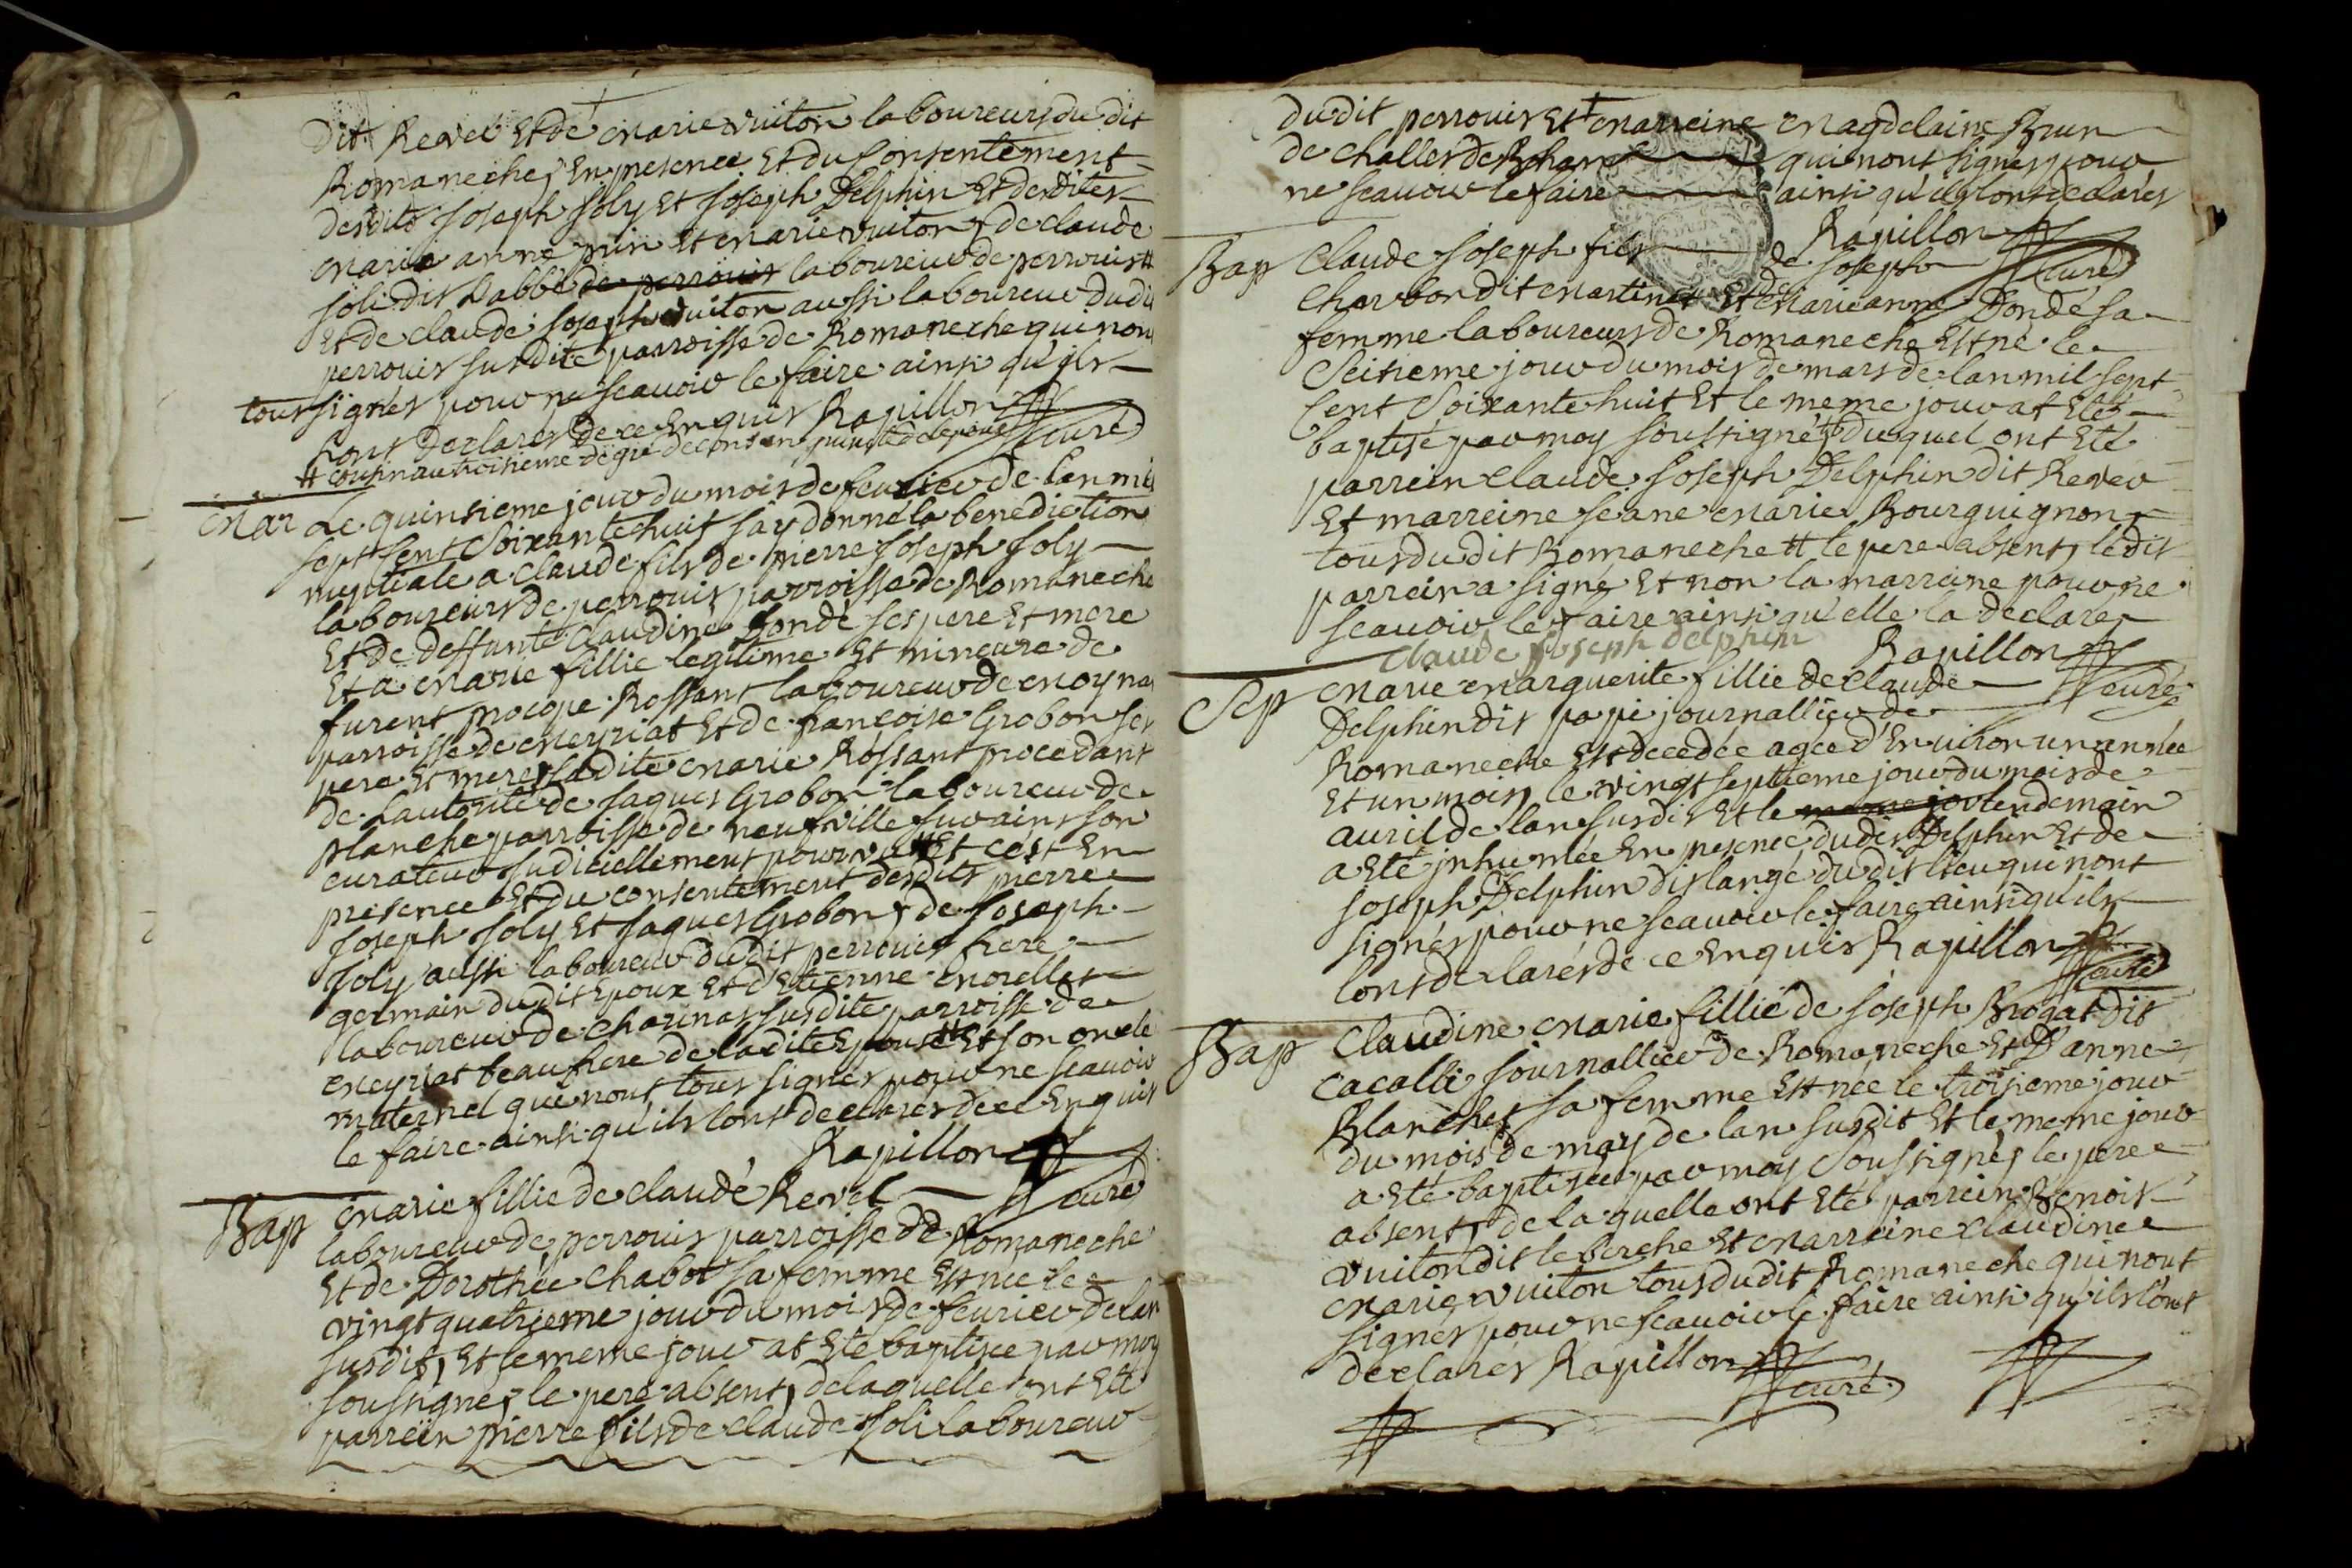 dit Revel Et de marie vuiton laboureurs du dit
Romaneche, En presence Et du Consentement
desdits Joseph Joly Et Joseph Delphin Et desdites
marie anne pin Et marie vuiton, de claude
Joli dit Labbé de perrouis laboureur de perrouis #
Et de claude Joseph vuiton aussi laboureur dudit
perrouis susdite parroisse de Romaneche qui nont
tous signés pour ne scauoir le faire ainsi qu'ils
Lont Declarés De ce Enquis Rapillon
curé
# cousin au troisieme degré de consanguinité de lepoux
mar Le quinsieme jour du mois de feurier de lan mil
sept Cent Soixante huit J'ay donné la benediction
nuptiale a claude fils de pierre Joseph Joly
laboureurs de perrouis parroisse de Romaneche
Et de deffunte Claudine Donde ses pere Et mere
Et a marie fillie legitime Et mineure de
furent procope Rossant laboureur de moyna
parroisse de meyriat Et de francoise Grobon ses
pere Et mere, ladite marie Rossant procedant
de Lautorité de Jaques Grobon laboureur de
planche parroisse de neufville sur ains son
curateur Judiciellement pourvu, Et cést En
presence Et du consentement desdits pierre
Joseph Joly Et Jaques Grobon, de Joseph
Joly aussi laboureur dudit perrouis frere
germain dudit Epoux Et d'Etienne morellet
laboureur de charinas susdite parroisse de
meyriat beaufrere de ladite Epouse Et son oncle
maternel qui nont tous signés pour ne scauoir
le faire ainsi qu'ils lont declarés de ce Enquis
Rapillon
curé
Bap marie fillie de claude Revel
laboureur de perrouis parroisse de Romaneche
Et de Dorothée chabot sa femme Est née le
vingt quatrieme jour du mois de feurier de lan
susdit, Et le meme jour at Eté baptisée par moy
soussigné, le pere absent, de laquelle ont Eté
parrein pierre fils de claude Joli laboureur
dudit perrouis Et marreine magdelaine Brun
de challes de Bohan qui nont signés pour
ne scauoir le faire ainsi qu'ils lont declarés
Rapillon
curé
Bap Claude Joseph fils de Joseph
Charbon dit martinet Et de marie anne Donde sa
femme laboureurs de Romaneche Est né le
Seisieme jour du mois de mars de lan mil sept
Cent Soixante huit Et le meme jour at Eté
baptisé par moy soussigné, duquel ont Eté
parrein claude Joseph Delphin dit Rever
Et marreine Jeane marie Bourguignon
tous du dit Romaneche # le pere absent, ledit
parrein a signé Et non la marreine pour ne
scauoir le faire ainsi qu'elle la declaré
claude joseph delphin
Rapillon
curé
Sep marie marguerite fillie de claude
Delphin dit papi journallier de
Romaneche Est decedée agée d'Enuiron un année
Et un mois, le vingt septieme jour du mois de
auril de lan susdit Et le meme jou lendemain
a Eté jnhumée En presence dudit Delphin Et de
Joseph Delphin dit langé du dit lieu qui nont
signés pour ne scauoir le faire ainsi qu'ils
lont declarés de ce Enquis Rapillon
curé
Bap Claudine marie fillie de Joseph Brogat dit
Cacalli, journallier de Romaneche Et D'anne
Blanchet sa femme Est née le troisieme jour
du mois de may de lan susdit Et le meme jour
a Eté baptisée par moy soussigné, le pere
absent, de laquelle ont Eté parrein Benoit
vuiton dit le berche Et marreine claudine
marie vuiton tous du dit Romaneche qui nont
signés pour ne scauoir le faire ainsi qu'ils lont
declarés Rapillon
curé